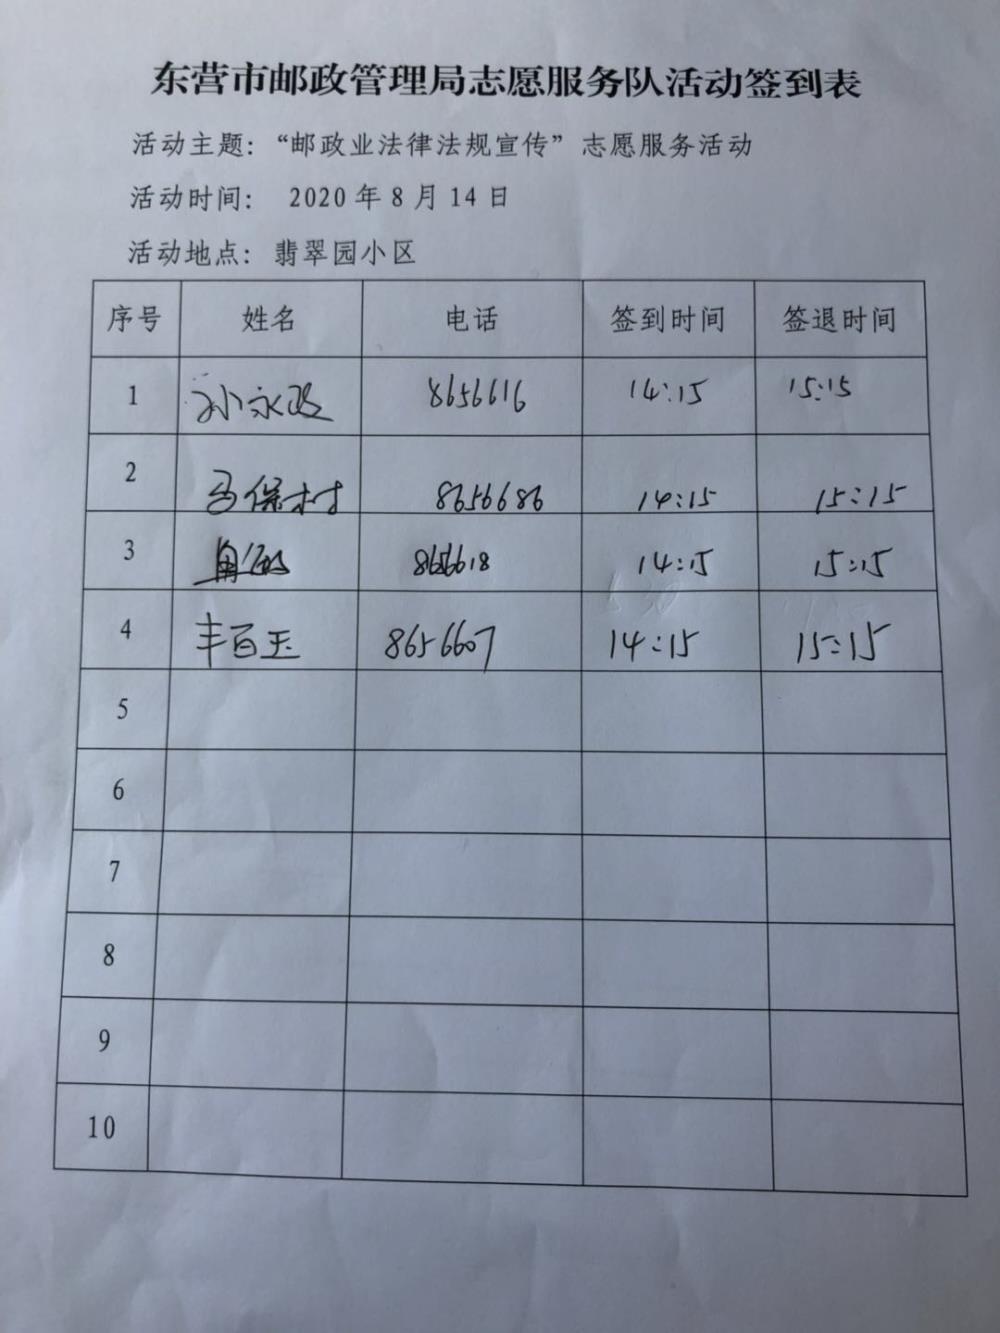 东营市邮政管理局志愿服务队活动签到表
活动主题：“邮政业法律法规宣传”志愿服务活动
活动时间： 2020年8月14日
活动地点：翡翠园小区
序号 姓名 电话 签到时间 签退时间
1 孙永政 8656616 14:15 15:15
2 马保村 8656686 14:15 15:15
3 8656618 14:15 15:15
4 丰百玉 8656607 14:15 15:15
5
6
7
8
9
10